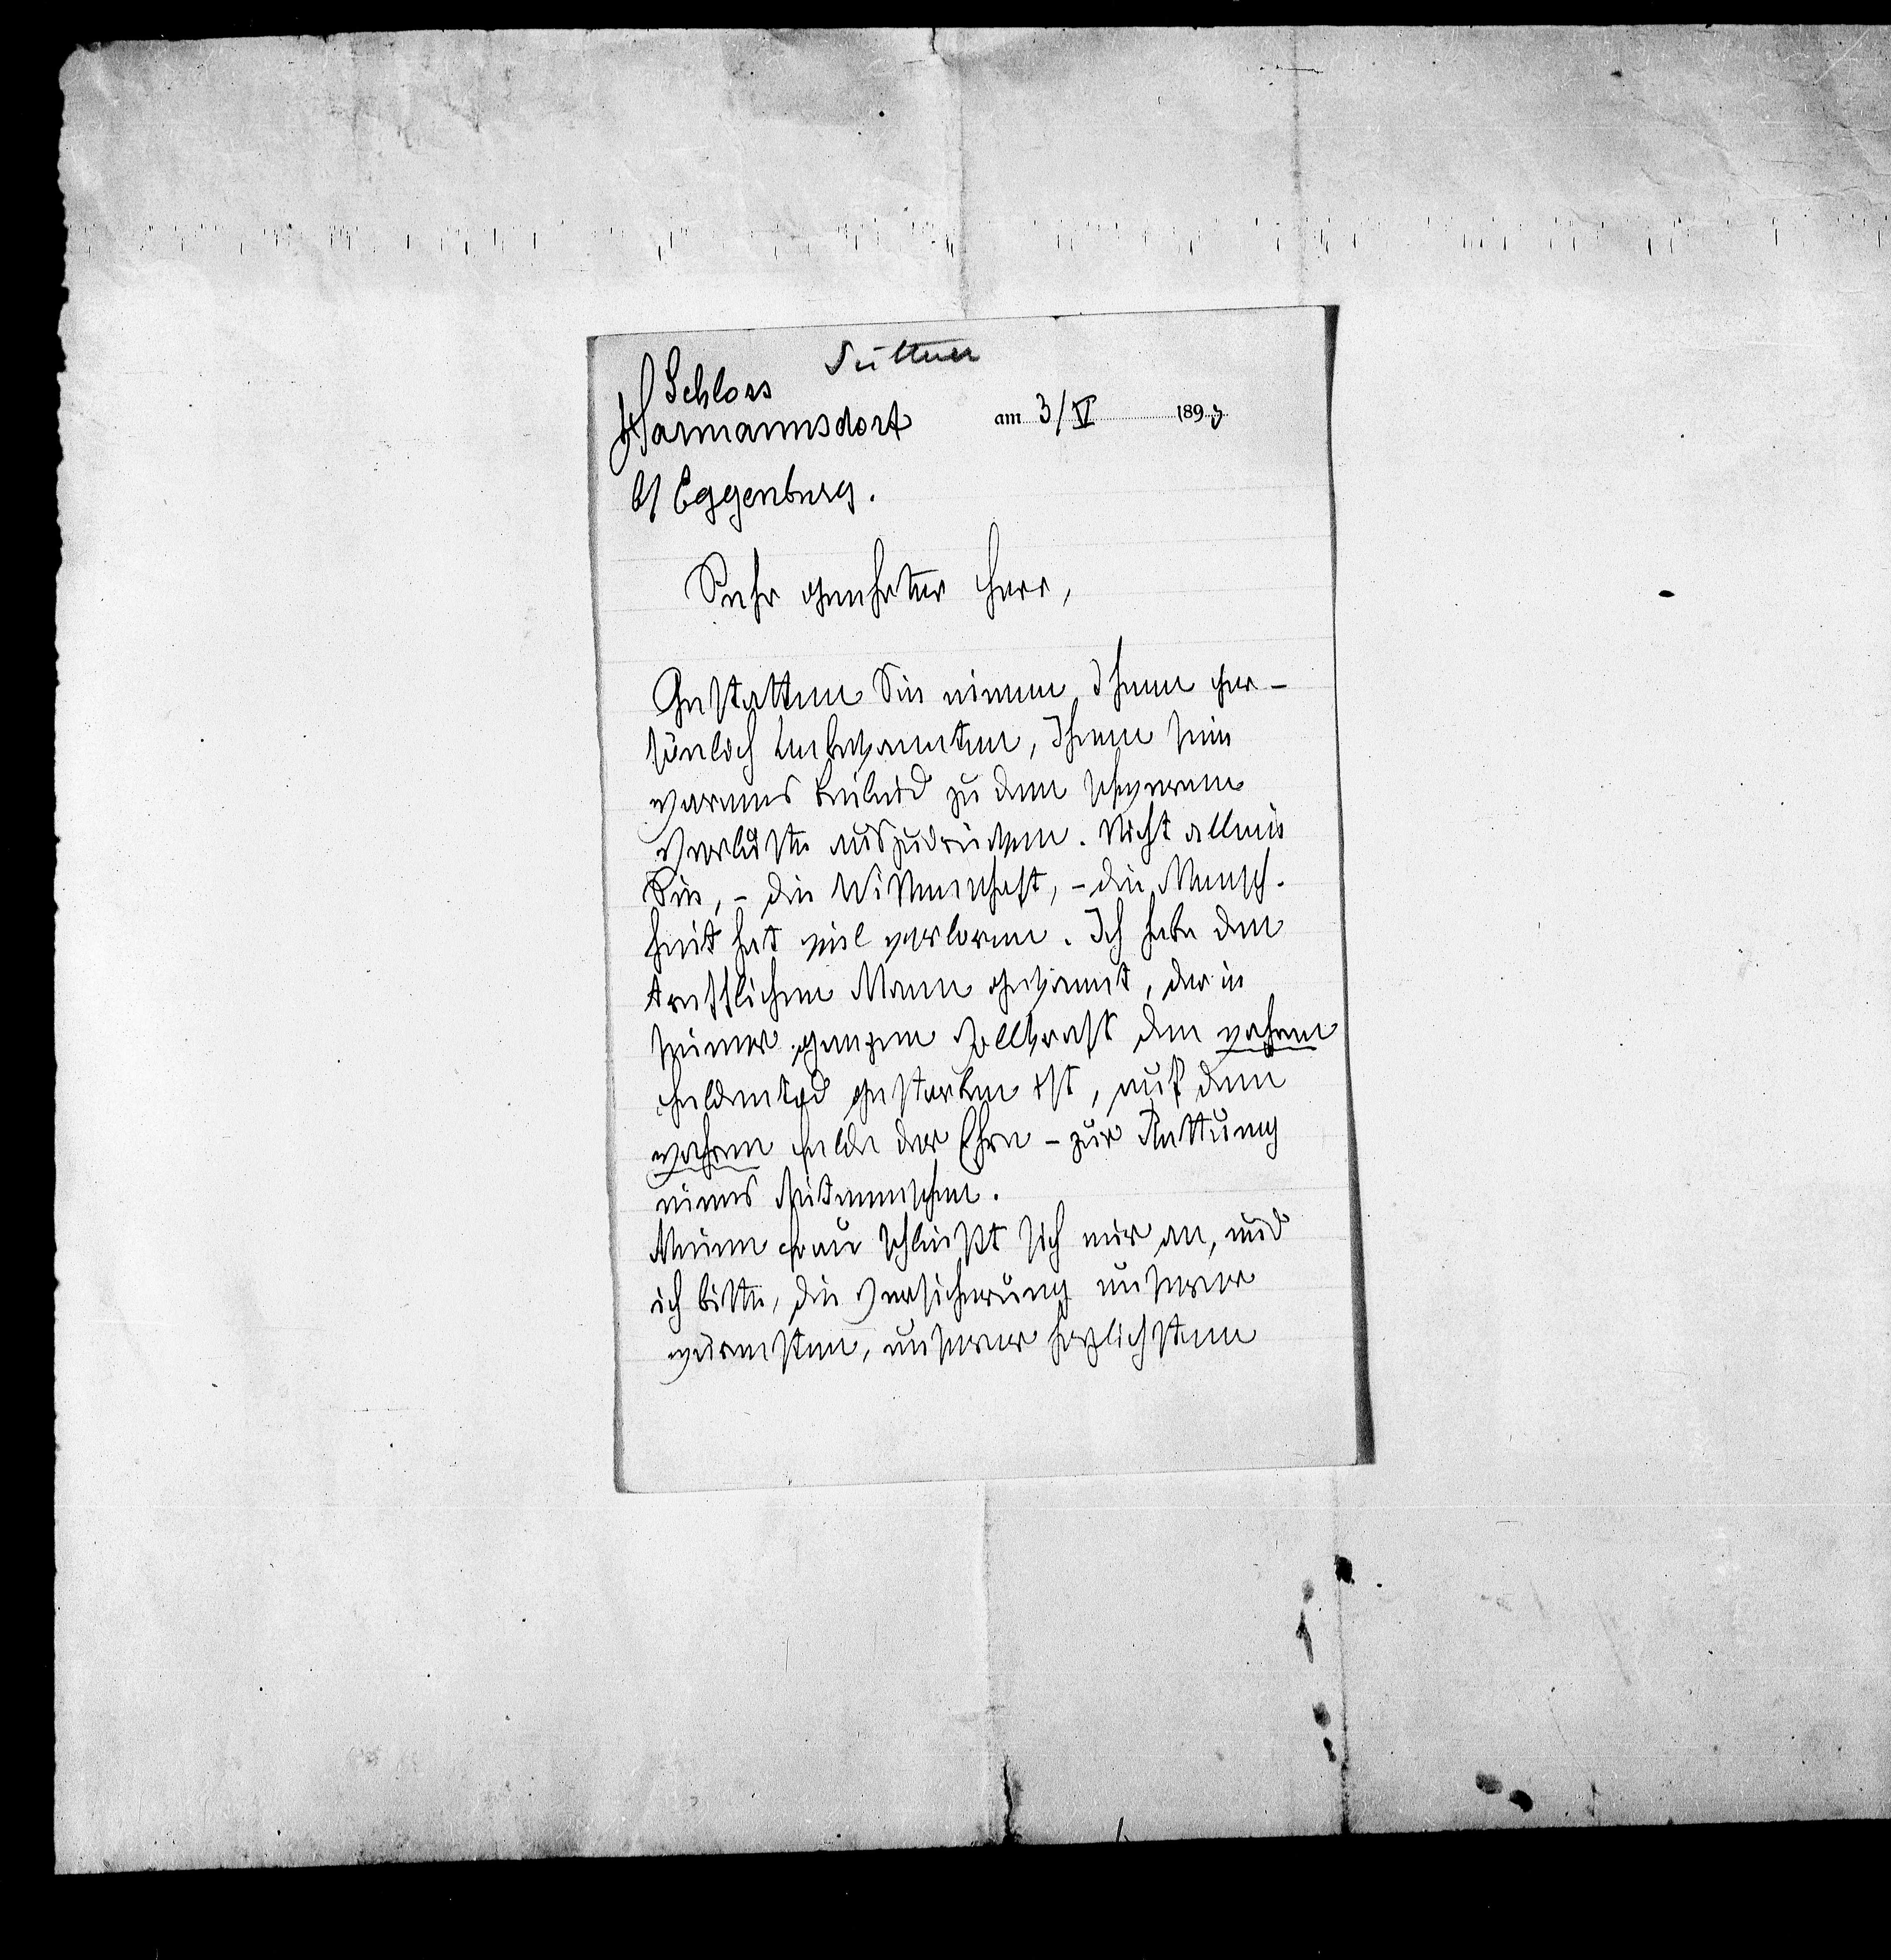 Suttner
Schloss
Harmannsdorf am 3/V 189
b/ Eggenburg.
Sehr geehrter Herr,
Gestatten Sie einem Ihnen per-
sönlich Unbekannten, Ihnen sein
warmes Beileid zu dem schweren
Verluste auszudrücken. Nicht allein
Sie, - die Wissenschaft, - die Mensch-
heit hat viel verloren. Ich habe den
trefflichen Mann gekannt, der in
seiner ganzen Vollkraft den wahren
Heldentod gestorben ist, auf dem
wahren Felde der Ehre - zur Rettung
eines Mitmenschen.
Meine Frau schließt sich mir an, und
ich bitte, die Versicherung unserer
wärmsten, unserer herzlichsten